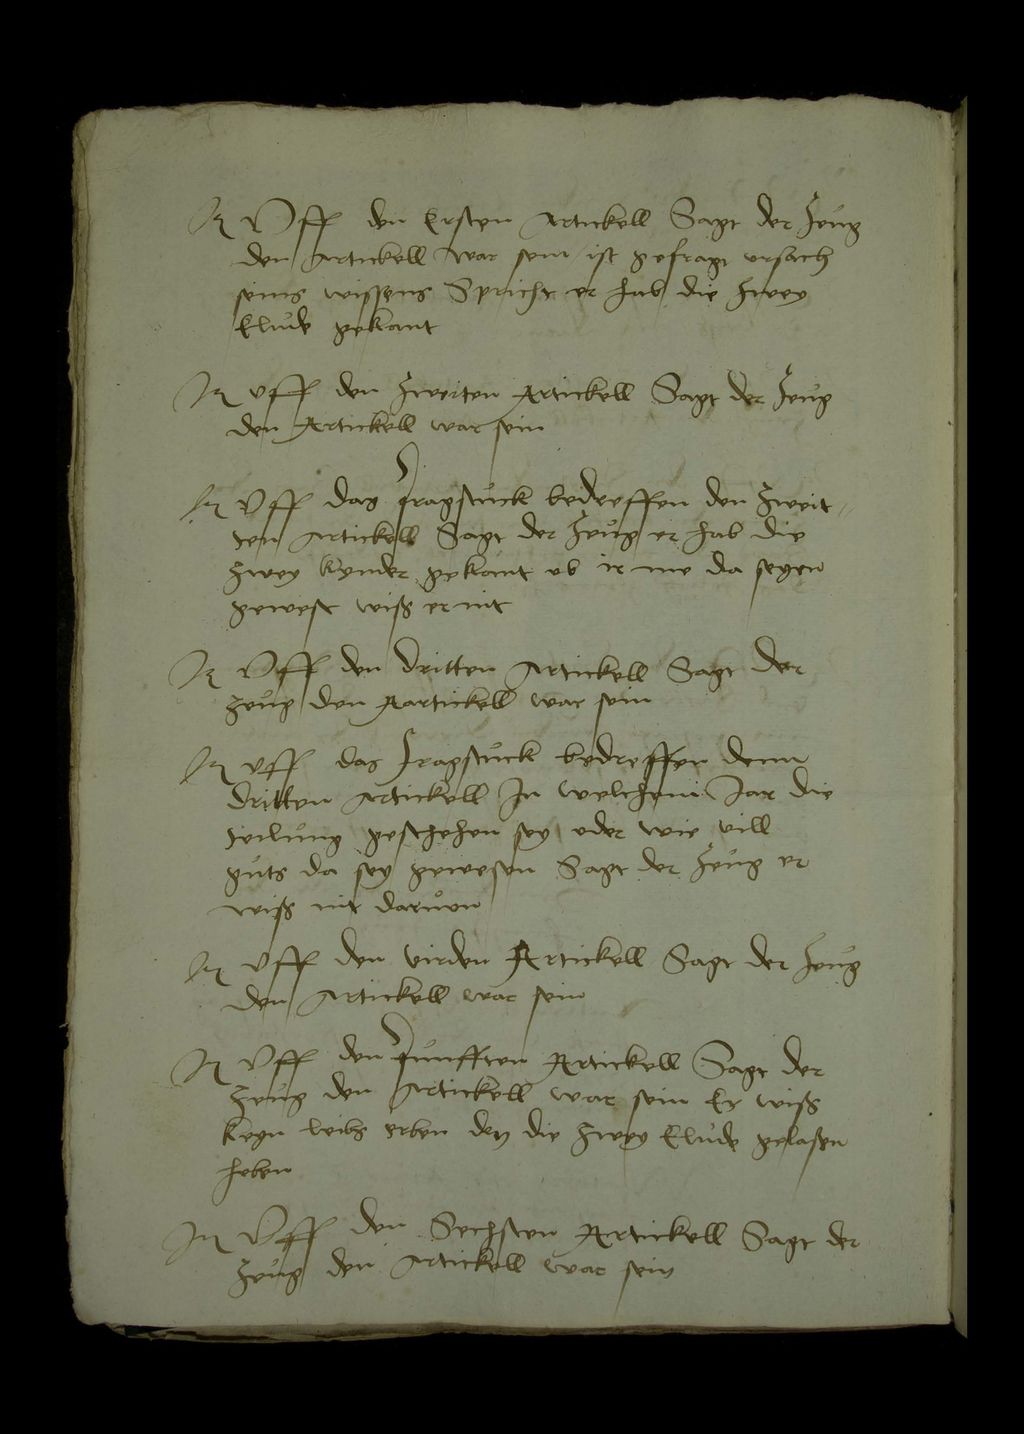 Jt Uff den Ersten Artickell Sagt der Zeug
den Artickell war sein ist gefragt ursach
seins wissens Spricht er hab die zwey
Elude gekant
Jt uff den Zweiten Artickell Sagt der Zeug
den Artickell war sein
Jt Uff das fragstuck bedreffen den Zweit-
ten Artickell Sagt der Zeug er hab die
zwey kynder gekant ob ir me da segen
gewest wiß er nit
Jt Uff den dritten Artickell Sagt der
zeug den Aartickell war sein
Jt uff das fragstuck bedreffen denn
dritten Artickell In welchem Jar die
teilung geschehen sey oder wie vill
guts da sey gewesen Sagt der Zeug er
wiß nit daruon
Jt Uff den virden Artickell Sagt der Zeug
den Artickell war sein
Jt Uff den funfften Artickell Sagt der
Zeug den Artickell war sein Er wiß
keyn leibs erben den die zwey Elude gelaßen
heben
Jt Uff den Sechsten Artickell Sagt der
Zeug den Artickell war sein